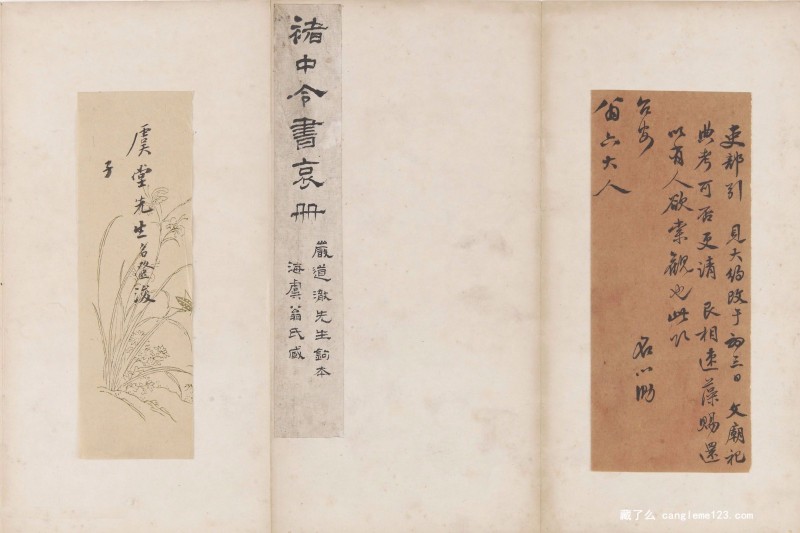 吏部引 見大約改于初三日 文廟祀
典考可否更請 艮相速藻賜還
以有人欲索觀也此
台安 名心泐
翁六大人
褚中令書哀冊
嚴道澈先生鉤本
海虞翁氏藏
虞堂先生名
藏了么 cangleme123.com